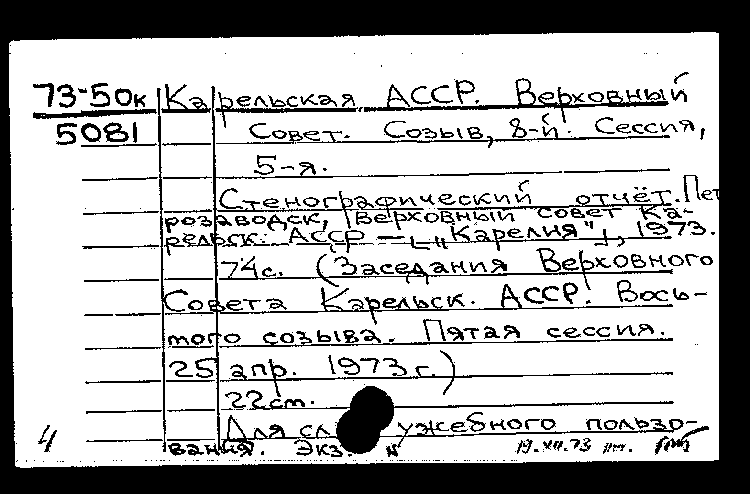 73-50к Карельская АССР. Верховный
5081 Совет. Созыв, 8-й. Сессия,
5-я.
Стенографический отчёт. Пет
розаводск, Верховный совет Ка-
рельск. АССР — [„Карелия"], 1973.
74с. (Заседания Верховного
Совета Карельск. АССР. Вось-
мого созыва. Пятая сессия.
25 апр. 1973 г.)
22 см.
Для служебного пользо-
вания. Экз. N
19.XII.73
4